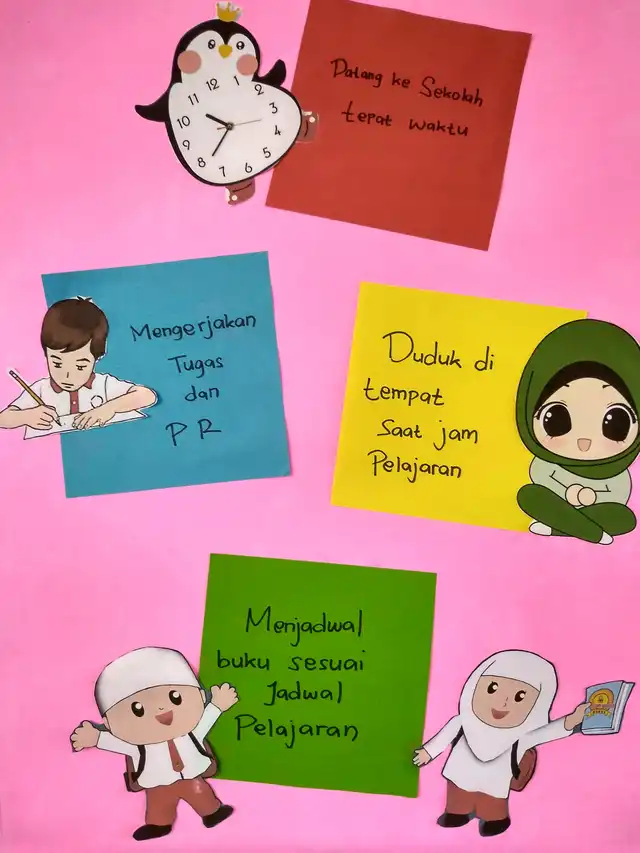 12
1
2
3
4
5
6
7
8
9
10
11
Datang ke Sekolah
tepat waktu
Mengerjakan
Tugas
dan
PR
Duduk di
tempat
Saat jam
Pelajaran
Menjadwal
buku sesuai
Jadwal
Pelajaran